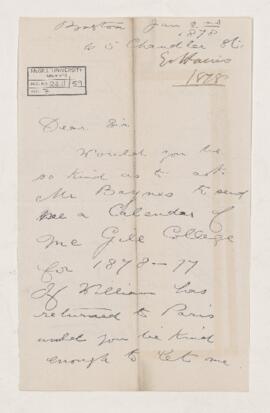 Boston Jan 2nd
1878
45 Chandler St.
E. Harris
1878
McGILL UNIVERSITY
ARCHIVES
59
Dear Sir
Would you be
so kind as to ask
Mr Baynes to send
me a Calendar of
McGill College
for 1878-77
If William has
returned to Paris
would you be kind
enough to let me